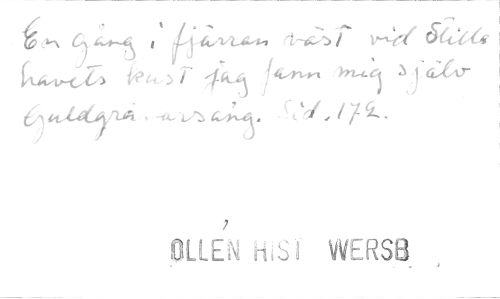 En gång i fjärran väst vid Stilla
havets kust jag fann mig själv
Guldgrä.arsång. Sid. 172.
OLLÉN HIST WERSB